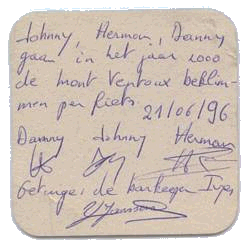 Johnny, Herman, Danny
gaan in het jaar 2000
de mont Ventoux beklim-
men per fiets. 21/06/96
Danny Johnny Herman
getuige; de barkeeper